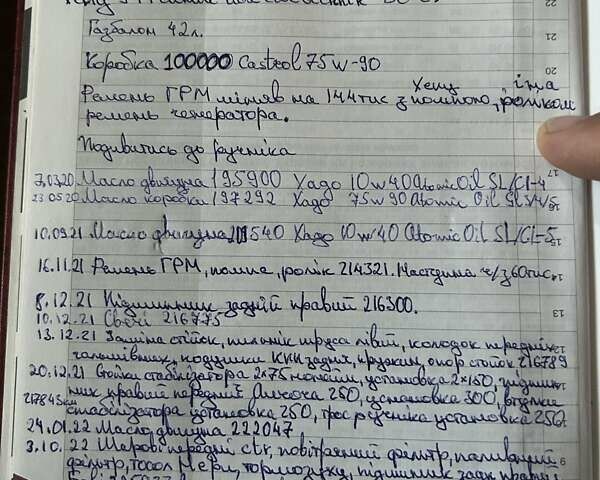 Газбалон 42л.
Коробка 100000 Castrol 75w-90
Хепу
Ремень ГРМ міняв на 144тис з помпою, роликом і на
ремень генератора.
Подивитись до ручніка
7.03.20 Масло двигуна 195900 Хадо 10w40 Atomic Oil SL/CI-4
23.05.20 Масло коробка 197292 Хадо 75w90 Atomic Oil
10.09.21 Масло двигуна 540 Хадо 10w40 Atomic Oil SL/CI-5
16.11.21 Ремень ГРМ, помпа, ролік 214321. Наступна ч/з 60тис.
8.12.21 Підшипник задній правий 216300.
10.12.21 Свічі 216775
13.12.21 Заміна стійок, пильнік шруса лівий, колодок передніх
гальмівних, подушки задніх, пружин, опор стійок 216789
20.12.21 Стойки стабілізатора 2×75 установка 2×150, підшип-
ник правий передній 250, установка 300, втулки
217843км стабілізатора установка 250, трос ручніка установка 250
24.01.22 Масло двигуна 222047
3.10.22 Шарові передні ctr, повітряний фільтр, паливний
фільтр, тосол тормозуху, підшипник задн правий
22
21
20
17
14
13
9